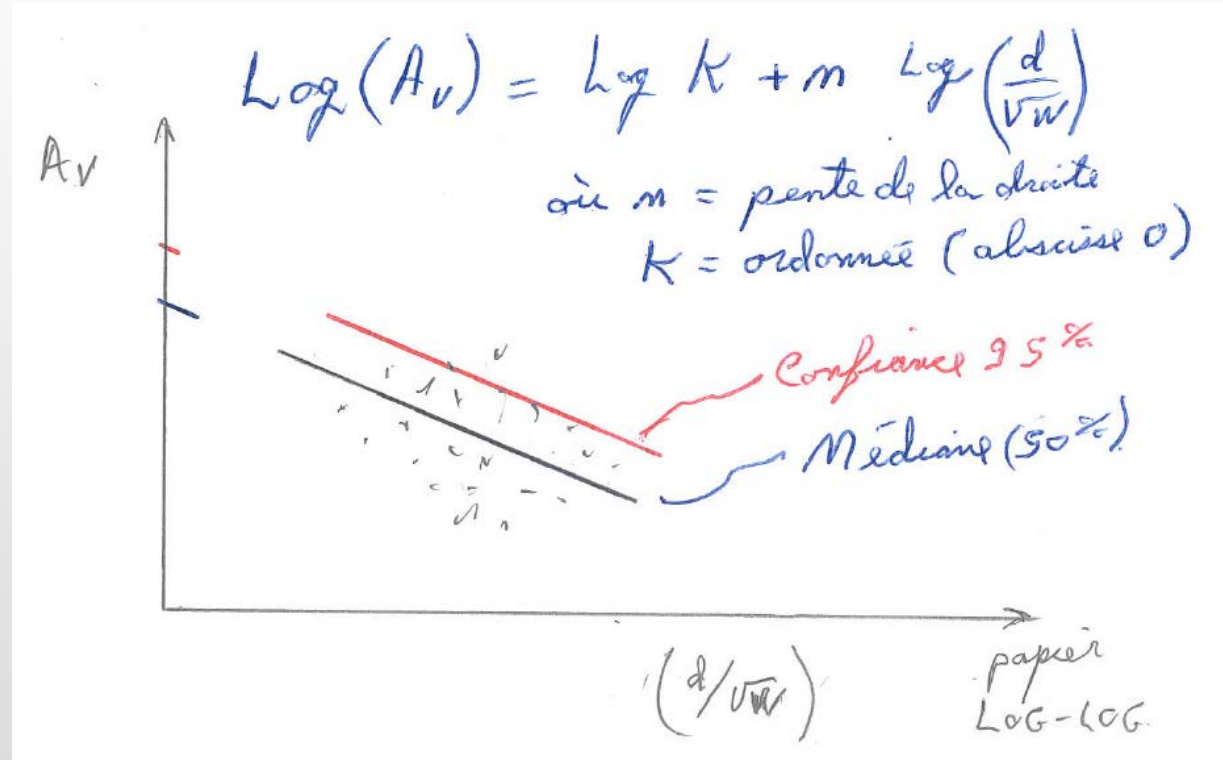 Log(Av) = Log K + n Log(d/√W)
Av
où n = pente de la droite
K = ordonnée (abscisse 0)
Confiance 95%
Médiane (50%)
(d/√W)
papier
LOG-LOG